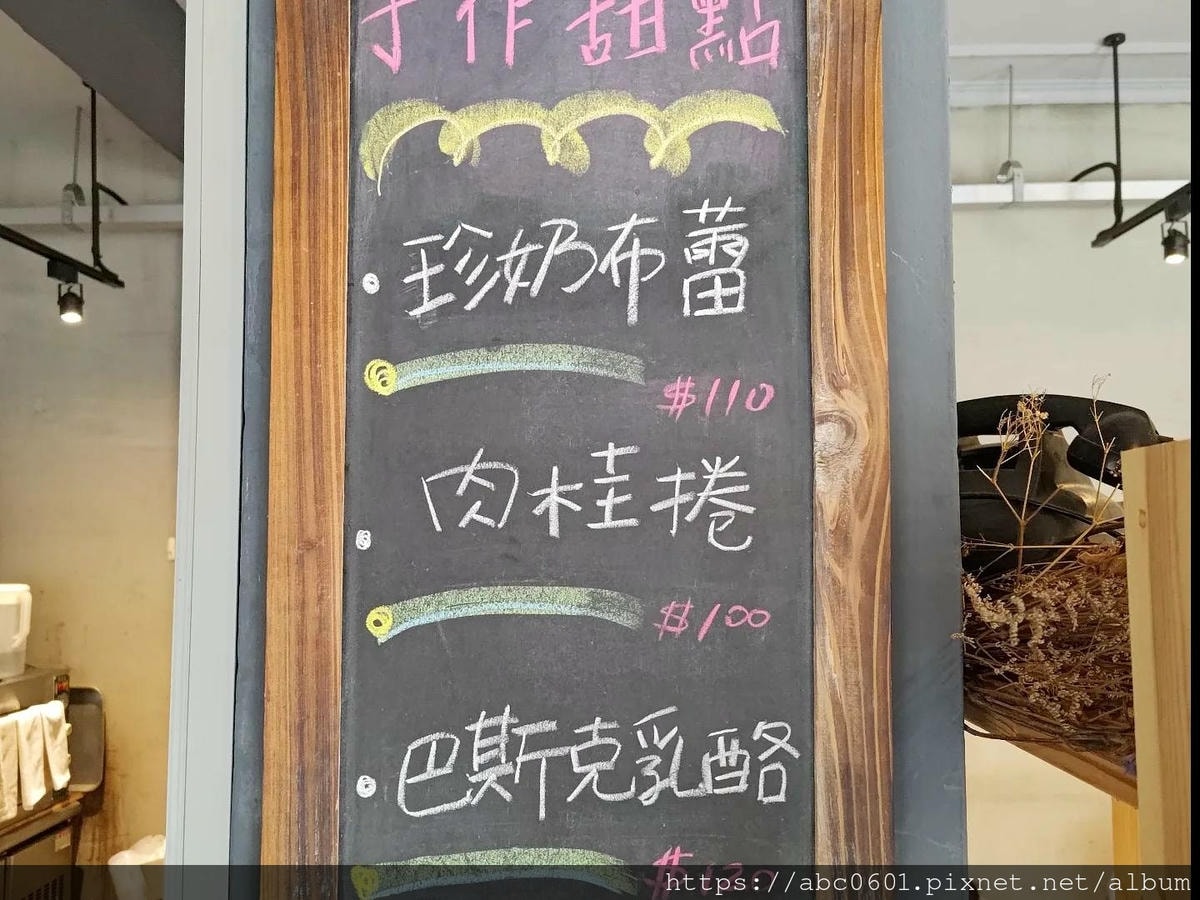 手作甜點
珍奶布蕾
$110
肉桂捲
$100
巴斯克乳酪
$130
https://abc0601.pixnet.net/album